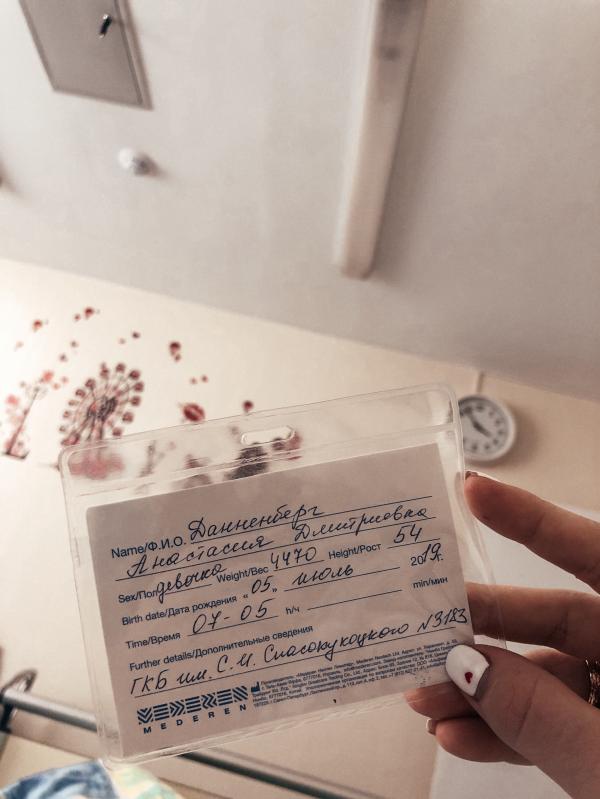 Name/Ф.И.О. Данненберг
Анастасия Дмитриевна
Sex/Пол девочка Weight/Вес 4470 Height/Рост 54
Birth date/Дата рождения "05" июль 2019г.
Time/Время 07-05 h/ч min/мин
Further details/Дополнительные сведения
ГКБ им. С.И. Спасокукоцкого N3183
MEDEREN